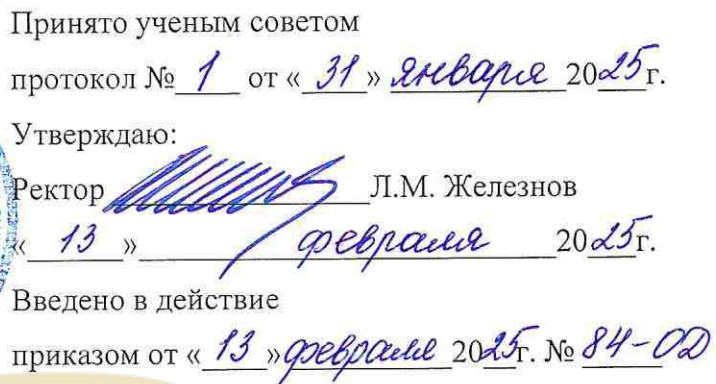 Принято ученым советом
протокол № 1 от « 31 » января 2025г.
Утверждаю:
Ректор Л.М. Железнов
« 13 » февраля 2025г.
Введено в действие
приказом от « 13 » февраля 2025г. № 84-ОД